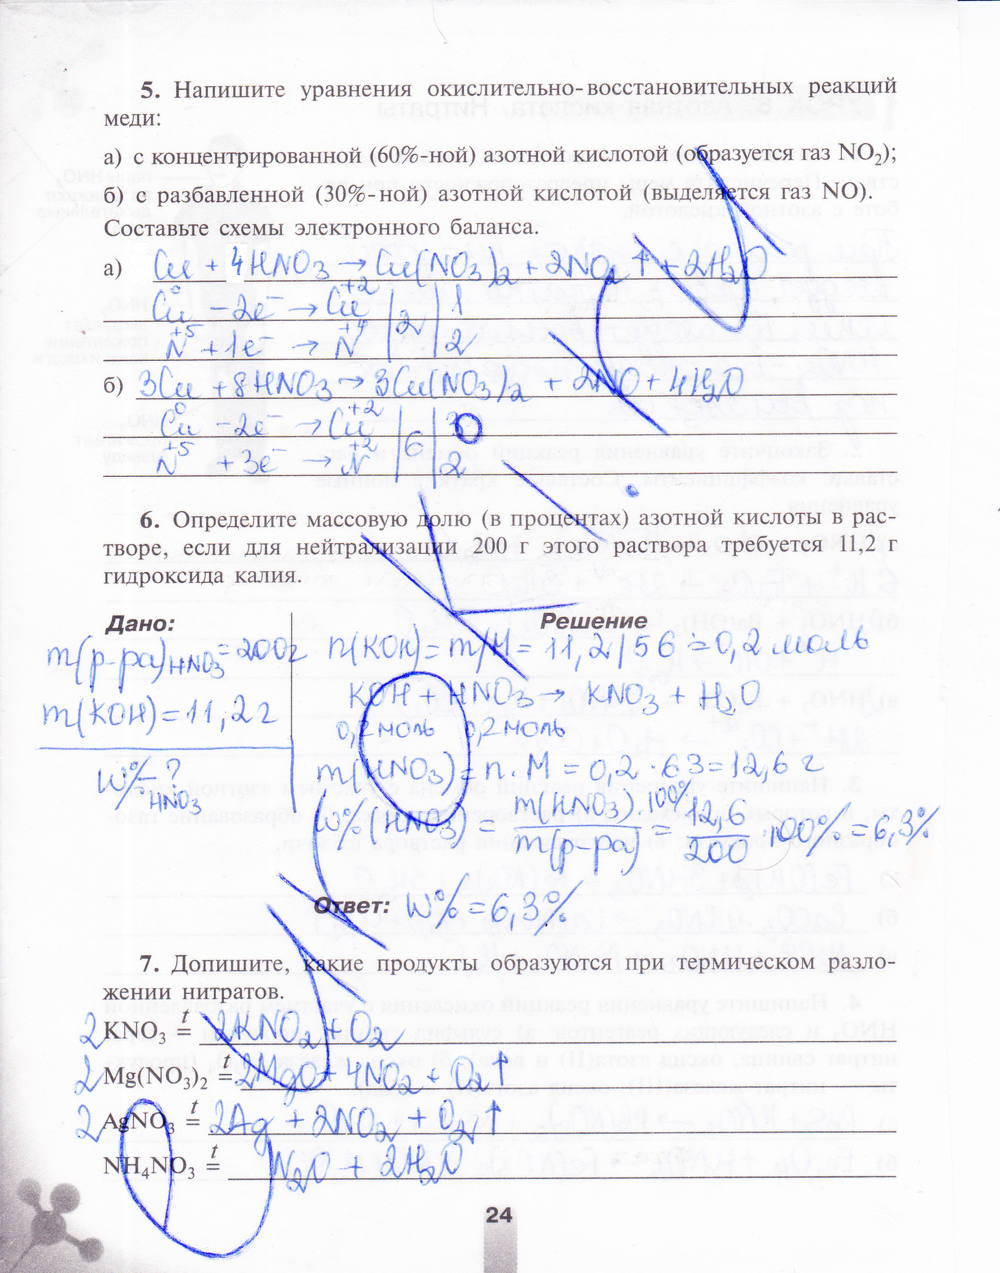 5. Напишите уравнения окислительно-восстановительных реакций
меди:
а) с концентрированной (60%-ной) азотной кислотой (образуется газ NO₂);
б) с разбавленной (30%-ной) азотной кислотой (выделяется газ NO).
Составьте схемы электронного баланса.
а) Cu + 4HNO₃ → Cu(NO₃)₂ + 2NO₂↑ + 2H₂O
Cu⁰ – 2e⁻ → Cu⁺² | 2 | 1
N⁺⁵ + 1e⁻ → N⁺⁴ | | 2
б) 3Cu + 8HNO₃ → 3Cu(NO₃)₂ + 2NO + 4H₂O
Cu⁰ – 2e⁻ → Cu⁺² | 6 | 3
N⁺⁵ + 3e⁻ → N⁺² | | 2
6. Определите массовую долю (в процентах) азотной кислоты в рас-
творе, если для нейтрализации 200 г этого раствора требуется 11,2 г
гидроксида калия.
Дано: Решение
m(р-ра)HNO₃ = 200г n(KOH) = m/M = 11,2/56 = 0,2 моль
m(KOH) = 11,2 г KOH + HNO₃ → KNO₃ + H₂O
0,2 моль 0,2 моль
W%HNO₃ – ? m(HNO₃) = n · M = 0,2 · 63 = 12,6 г
W%(HNO₃) = m(HNO₃) · 100% / m(р-ра) = 12,6 / 200 · 100% = 6,3%
Ответ: W% = 6,3%
7. Допишите, какие продукты образуются при термическом разло-
жении нитратов.
2KNO₃ =ᵗ 2KNO₂ + O₂
2Mg(NO₃)₂ =ᵗ 2MgO + 4NO₂ + O₂↑
2AgNO₃ =ᵗ 2Ag + 2NO₂ + O₂↑
NH₄NO₃ =ᵗ N₂O + 2H₂O
24